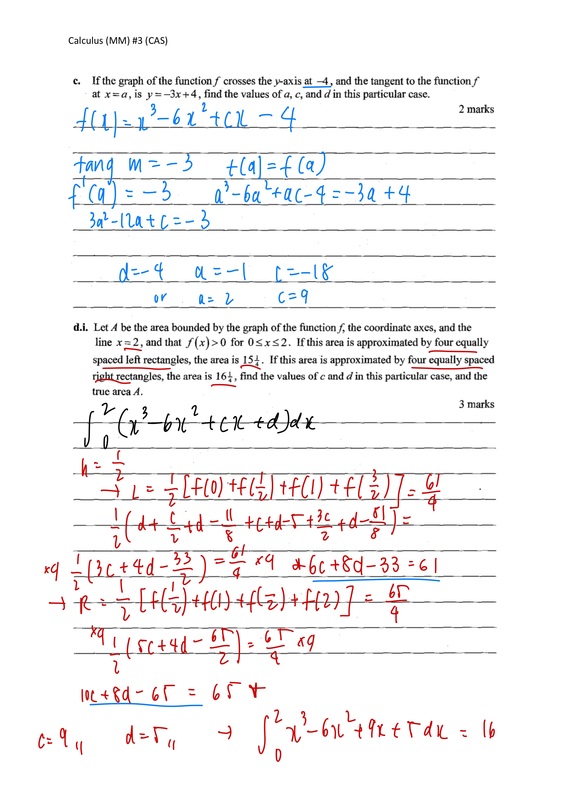 Calculus (MM) #3 (CAS)
c. If the graph of the function f crosses the y-axis at −4, and the tangent to the function f
at x = a, is y = −3x + 4, find the values of a, c, and d in this particular case.
2 marks
f(x) = x³ − 6x² + cx − 4
tang m = −3 t(a) = f(a)
f'(a) = −3 a³ − 6a² + ac − 4 = −3a + 4
3a² − 12a + c = −3
d = −4 a = −1 c = −18
or a = 2 c = 9
d.i. Let A be the area bounded by the graph of the function f, the coordinate axes, and the
line x = 2, and that f(x) > 0 for 0 ≤ x ≤ 2. If this area is approximated by four equally
spaced left rectangles, the area is 15¼. If this area is approximated by four equally spaced
right rectangles, the area is 16¼, find the values of c and d in this particular case, and the
true area A.
3 marks
∫₀² (x³ − 6x² + cx + d) dx
h = 1/2
→ L = 1/2 [f(0) + f(1/2) + f(1) + f(3/2)] = 61/4
1/2 (d + c/2 + d − 11/8 + c + d − 5 + 3c/2 + d − 81/8) =
×4 1/2 (3c + 4d − 33/2) = 61/4 ×4 6c + 8d − 33 = 61
→ R = 1/2 [f(1/2) + f(1) + f(3/2) + f(2)] = 65/4
×4 1/2 (5c + 4d − 65/2) = 65/4 ×4
10c + 8d − 65 = 65
c = 9,, d = 5,, → ∫₀² x³ − 6x² + 9x + 5 dx = 16